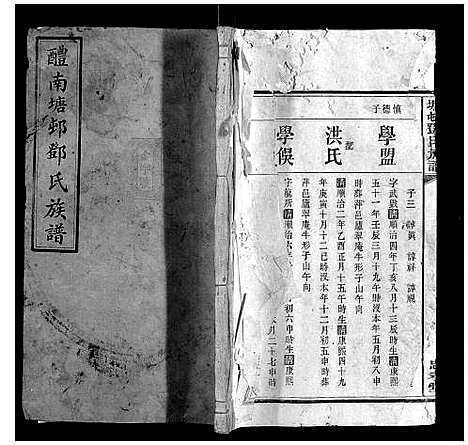 醴南塘邨鄧氏族譜
慎德子
學盟
子三 諄眞 諄祥 諄覜
字武戩清順治四年丁亥八月十三辰時生清康熙
五十一年壬辰三月十九午時沒本年五月初八申
時葬萍邑蘆翠庵牛形子山午向
配洪氏
清順治二年乙酉正月十五午時生清康熙四十九
年庚寅十月十二巳時沒本年十二月初五申時葬
萍邑蘆翠庵牛形子山午向
學俁
清順治
初六申時生清康熙
月二十七申時
鄧氏族譜